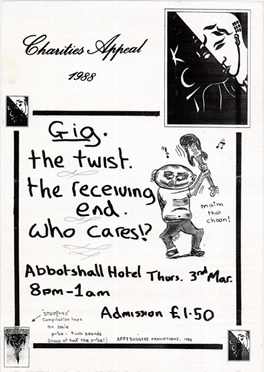 Charities Appeal
1988
KCT
Gig.
the twist.
the receiving
end.
who cares!?
maim
that
choon!
Abbotshall Hotel Thurs. 3rd Mar.
8pm-1am
Admission £1·50
Compilation tape
on sale
price - two pounds
(cheap at half the price!)
PROMOTIONS, 1988